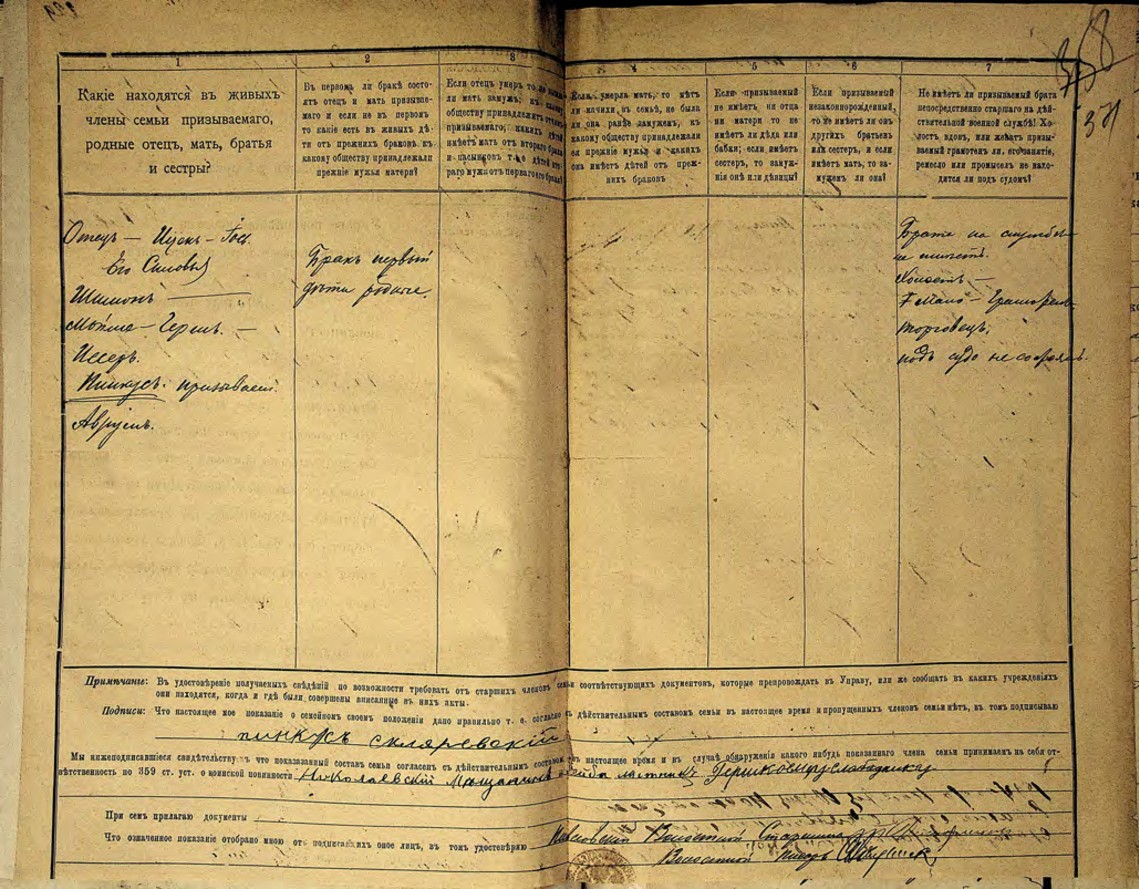 358
371
1
Какіе находятся въ живыхъ
члены семьи призываемаго,
родные отецъ, мать, братья
и сестры?
2
Въ первомъ ли бракѣ состо-
ятъ отецъ и мать призывае-
маго и если не въ первомъ
то какіе есть въ живыхъ дѣ-
ти отъ прежнихъ браковъ къ
какому обществу принадлежали
прежніе мужья матери?
3
Если отецъ умеръ то не вышла
ли мать замужъ; къ какому
обществу принадлежитъ отчимъ
призываемаго, какихъ дѣтей
имѣетъ мать отъ втораго брака
и пасынковъ т. е. дѣтей вто-
раго мужа отъ перваго его брака?
4
Если умерла мать, то нѣтъ
ли мачихи въ семьѣ, не была
ли она ранѣе замужемъ, къ
какому обществу принадлежали
ея прежніе мужья и какихъ
она имѣетъ дѣтей отъ преж-
нихъ браковъ
5
Если призываемый
не имѣетъ ни отца
ни матери то не
имѣетъ ли дѣда или
бабки; если имѣетъ
сестеръ, то замуж-
нія онѣ или дѣвицы?
6
Если призываемый
незаконорожденный,
то не имѣетъ ли онъ
другихъ братьевъ
или сестеръ, и если
имѣетъ мать, то за-
мужемъ ли она?
7
Не имѣетъ ли призываемый брата
непосредственно старшаго на дѣй-
ствительной военной службѣ? Хо-
лостъ, вдовъ, или женатъ призы-
ваемый грамотенъ ли, его занятіе,
ремесло или промыселъ не нахо-
дится ли подъ судомъ?
Отецъ — Ицекъ —
Его Сыновья
Шимонъ
Мотле — Герш. —
Иссеръ.
Пинкусъ. призываем.
Аврумъ.
Бракъ первый
дѣти родные.
Брата на службѣ
не имѣетъ.
Холостъ —
Мало — Грамотен
торговецъ,
подъ судо не состоялъ
Примѣчаніе: Въ удостовѣреніе получаемыхъ свѣдѣній по возможности требовать отъ старшихъ членовъ семьи соотвѣтствующихъ документовъ, которые препровождать въ Управу, или же сообщать въ какихъ учрежденіяхъ
они находятся, когда и гдѣ были совершены вписанные въ нихъ акты.
Подписи: Что настоящее мое показаніе о семейномъ своемъ положеніи дано правильно т. е. согласно съ дѣйствительнымъ составомъ семьи въ настоящее время и пропущенныхъ членовъ семьи нѣтъ, въ томъ подписываю
пинкусъ скляревскій
Мы нижеподписавшіеся свидѣтельствуемъ что показанный составъ семьи согласенъ съ дѣйствительнымъ составомъ въ настоящее время и въ случаѣ обнаруженія какого нибудь показаннаго члена семьи принимаемъ на себя от-
вѣтственность по 359 ст. уст. о воинской повинности Николаевскій Мащанинъ
При семъ прилагаю документы
Что означенное показаніе отобрано мною отъ подписавшихъ оное лицъ, въ томъ удостовѣряю
Волостной Старшина
Волостной писарь